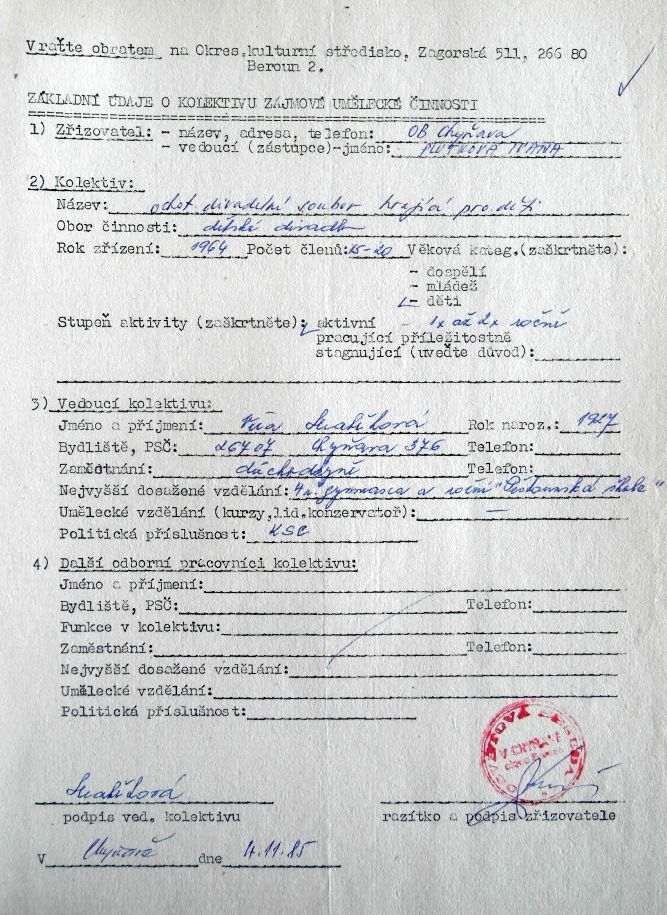 Vraťte obratem na Okres.kulturní středisko, Zagorská 511, 266 80
Beroun 2.
ZÁKLADNÍ ÚDAJE O KOLEKTIVU ZÁJMOVÉ UMĚLECKÉ ČINNOSTI
1) Zřizovatel: - název, adresa, telefon: OB Chyňava
- vedoucí (zástupce)-jméno:
2) Kolektiv:
Název: ochot. divadelní soubor hrající pro děti
Obor činnosti: dětské divadlo
Rok zřízení: 1964 Počet členů: 15-20 Věková kateg.(zaškrtněte):
- dospělí
- mládež
- děti
Stupeň aktivity (zaškrtněte): aktivní - 1x až 2x ročně
pracující příležitostně
stagnující (uveďte důvod):
3) Vedoucí kolektivu:
Jméno a příjmení: Rok naroz.: 1927
Bydliště, PSČ: 26707 Chyňava 376 Telefon:
Zaměstnání: důchodkyně
Nejvyšší dosažené vzdělání: 4 tř. gymnasia a roční škola"
Umělecké vzdělání (kurzy,lid.konzervatoř): —
Politická příslušnost: KSČ
4) Další odborní pracovníci kolektivu:
Jméno a příjmení:
Bydliště, PSČ: Telefon:
Funkce v kolektivu:
Zaměstnání: Telefon:
Nejvyšší dosažené vzdělání:
Umělecké vzdělání:
Politická příslušnost:
OSVĚTOVÁ BESEDA
V CHYŇAVĚ
podpis ved. kolektivu razítko a podpis zřizovatele
V Chyňavě dne 4.11.85